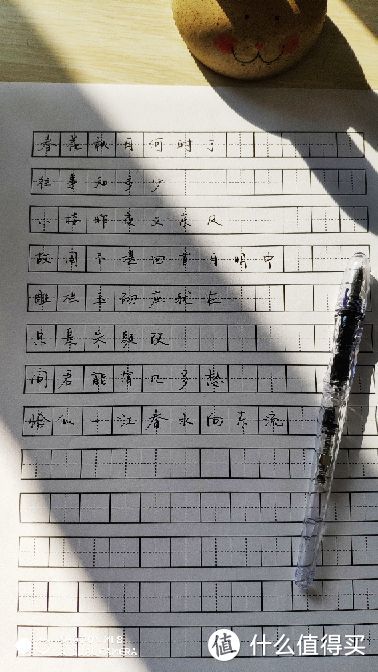 春花秋月何时了
往事知多少
小楼昨夜又东风
故国不堪回首月明中
雕栏玉砌应犹在
只是朱颜改
问君能有几多愁
恰似一江春水向东流
CAMERA
值 什么值得买